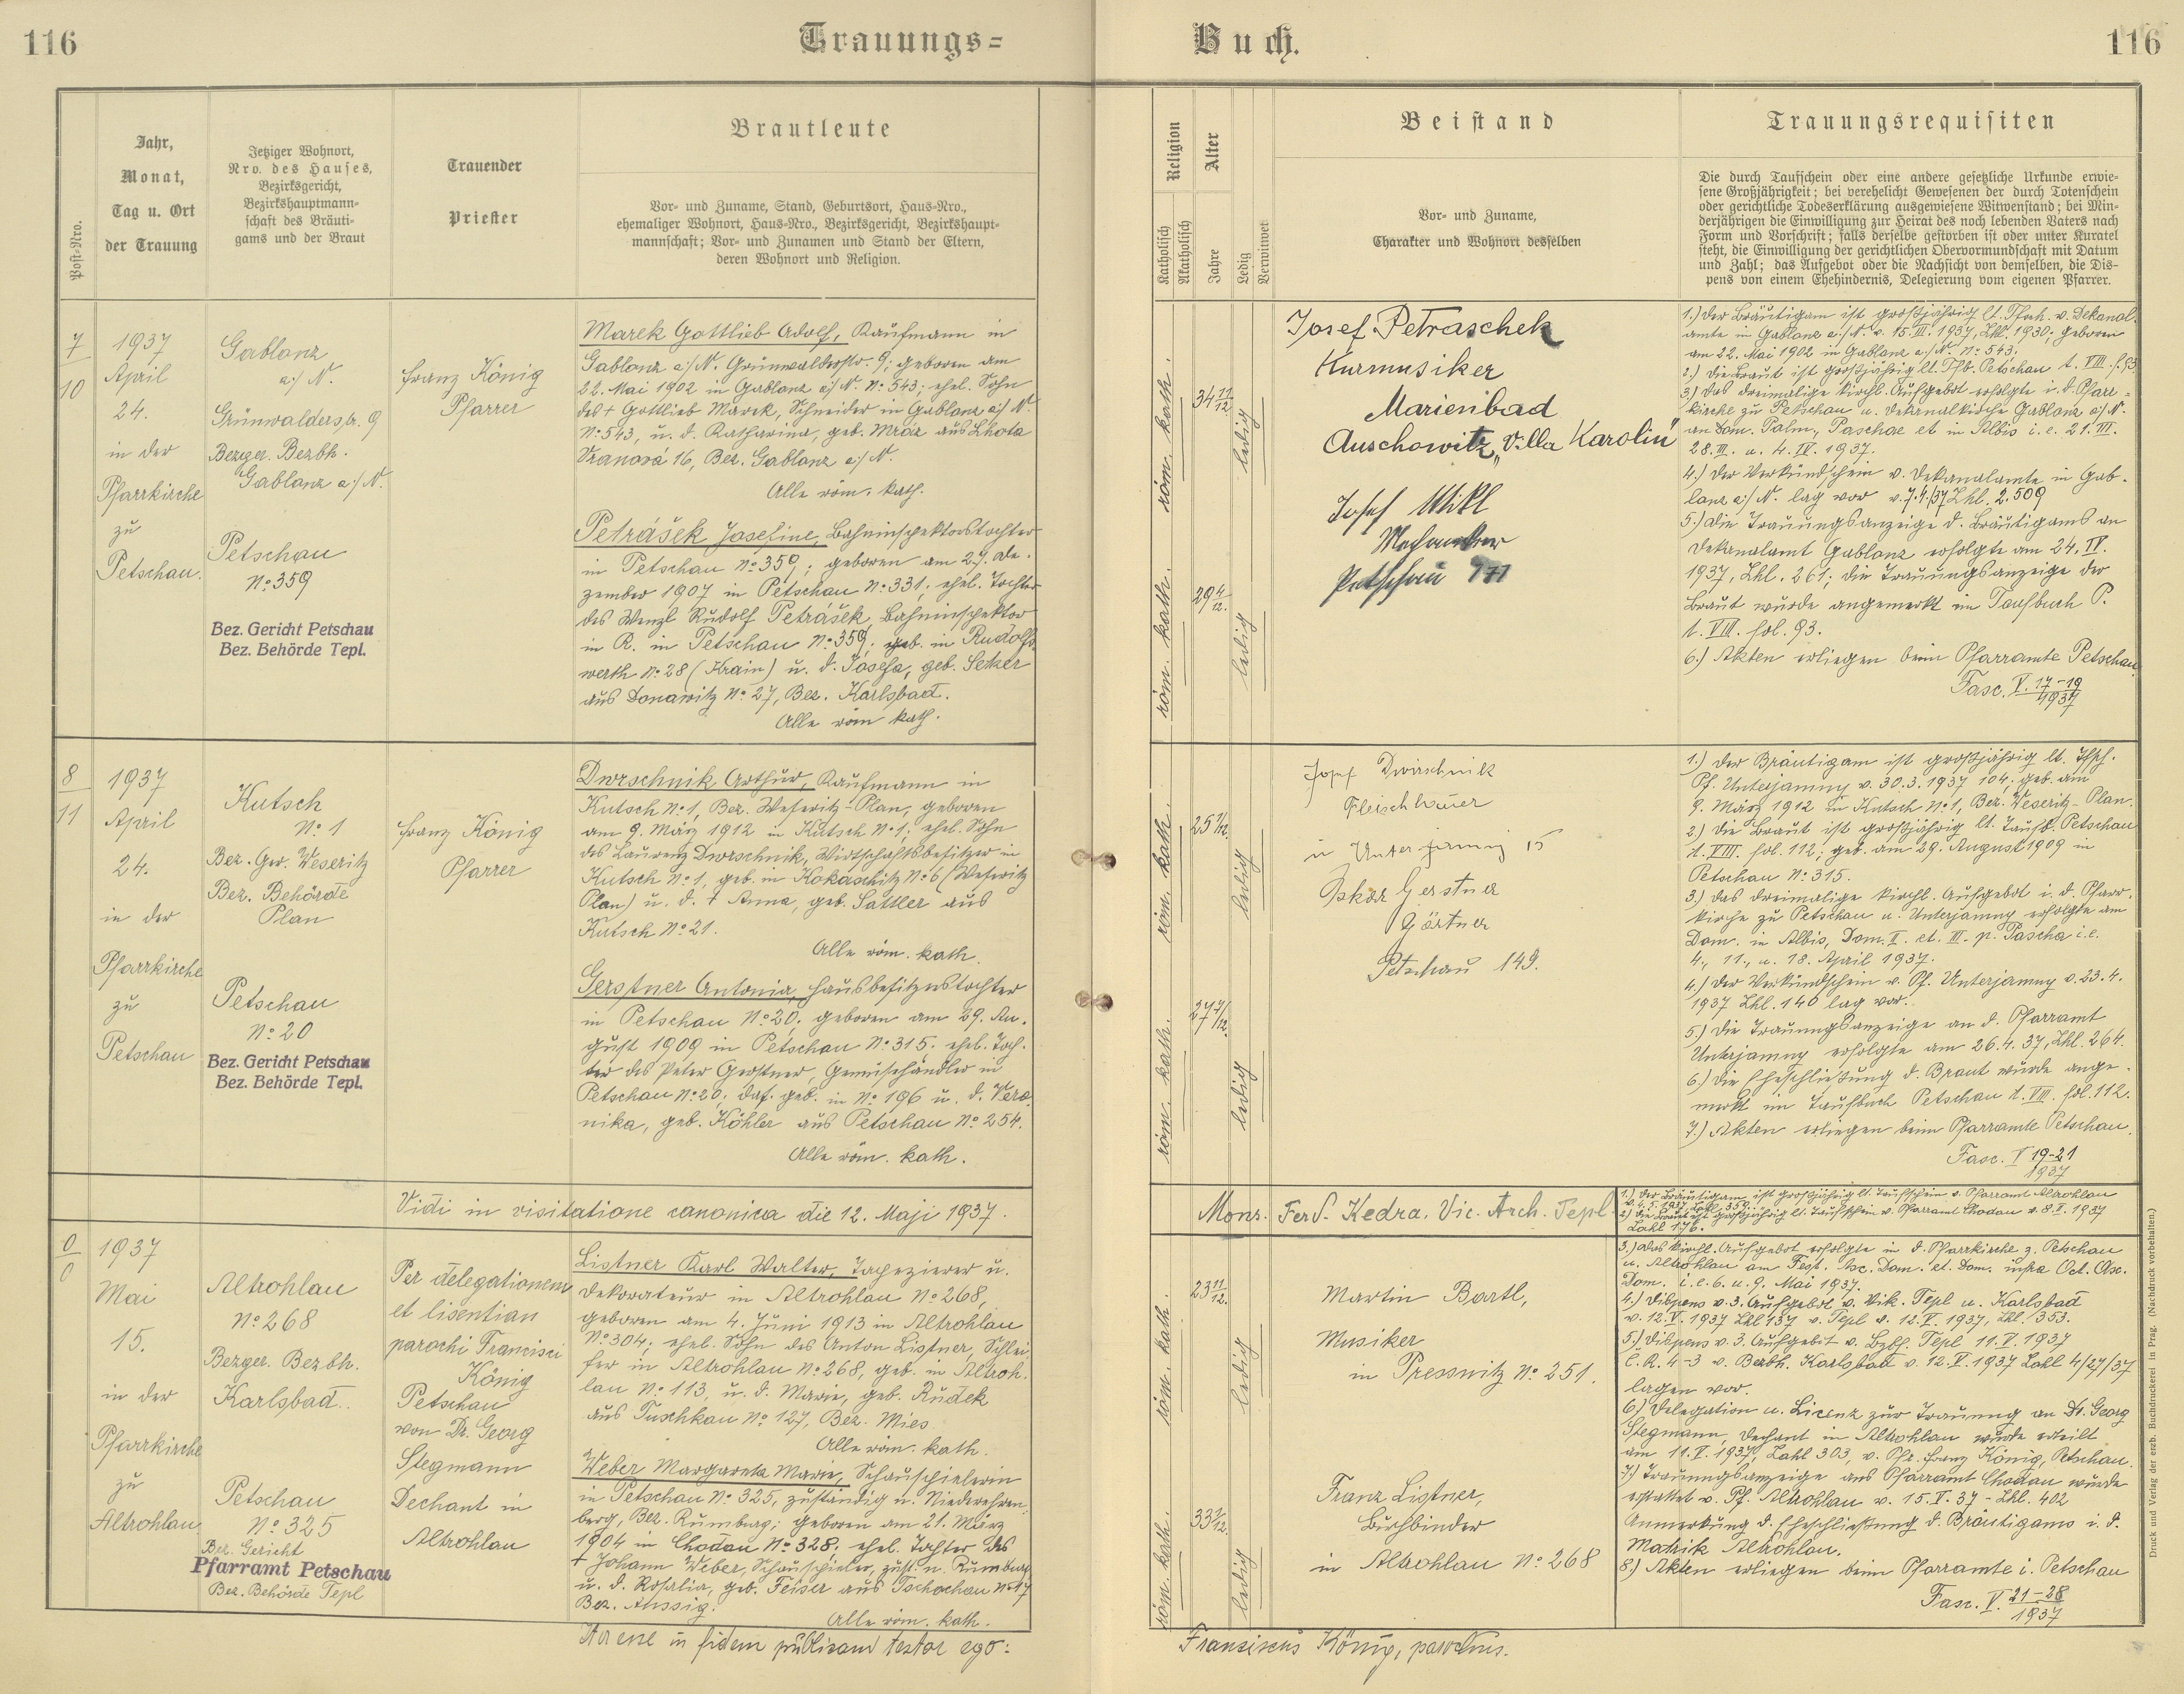 116
Trauungs=
Buch.
116
Post-Nro.
Jahr,
Monat,
Tag u. Ort
der Trauung
Jetziger Wohnort,
Nro. des Hauses,
Bezirksgericht,
Bezirkshauptmann-
schaft des Bräuti-
gams und der Braut
Trauender
Priester
Brautleute
Vor- und Zuname, Stand, Geburtsort, Haus-Nro.,
ehemaliger Wohnort, Haus-Nro., Bezirksgericht, Bezirkshaupt-
mannschaft; Vor- und Zunamen und Stand der Eltern,
deren Wohnort und Religion.
Religion
Katholisch
Akatholisch
Alter
Jahre
Ledig
Verwitwet
Beistand
Vor- und Zuname,
Charakter und Wohnort desselben
Trauungsrequisiten
Die durch Taufschein oder eine andere gesetzliche Urkunde erwie-
sene Großjährigkeit; bei verehelicht Gewesenen der durch Totenschein
oder gerichtliche Todeserklärung ausgewiesene Witwenstand; bei Min-
derjährigen die Einwilligung zur Heirat des noch lebenden Vaters nach
Form und Vorschrift; falls derselbe gestorben ist oder unter Kuratel
steht, die Einwilligung der gerichtlichen Obervormundschaft mit Datum
und Zahl; das Aufgebot oder die Nachsicht von demselben, die Dis-
pens von einem Ehehindernis, Delegierung vom eigenen Pfarrer.
7
10
1937
April
24.
in der
Pfarrkirche
zu
Petschau.
Gablanz
a/ N.
Grünwalderstr. 9
Bezger. Bezbh.
Gablanz a/ N.
Petschau
No 359
Bez. Gericht Petschau
Bez. Behörde Tepl.
Franz König
Pfarrer
Marek Gottlieb Adolf, Kaufmann in
Gablanz a/N. Grünwalderstr. 9; geboren am
22. Mai 1902 in Gablanz a/N. No 543; ehel. Sohn
des + Gottlieb Marek, Schneider in Gablanz a/N.
No 543, u. d. Katharina, geb. Mráz aus Lhota
Vranová 16, Bez. Gablanz a/N.
Alle röm. kath.
Petrášek Josefine, Bahninspektorstochter
in Petschau No 359,; geboren am 27. De-
zember 1907 in Petschau No 331; ehel. Tochter
des Wenzl Rudolf Petrášek, Bahninspektor
in R. in Petschau No 359; geb. in Rudolfs-
werth No 28 (Krain) u. d. Josefa, geb. Seker
aus Donawitz No 27, Bez. Karlsbad.
Alle röm kath.
röm. kath.
34 11/12
ledig
röm. kath.
29 4/12.
ledig
Josef Petraschek
Kurmusiker
Marienbad
Auschowitz „Villa Karolin"
Josef Mikl
Mechaniker
Petschau
1.) Der Bräutigam ist großjährig lt. Tfsch. v. Dekanal-
amte in Gablanz a/N. v. 15. III. 1937, Zhl. 1930; geboren
am 22. Mai 1902 in Gablanz a/N. No 543.
2.) Die Braut ist großjährig lt. Tfb. Petschau t. VIII. f. 93
3.) Das dreimalige kirchl. Aufgebot erfolgte i. d. Pfarr-
kirche zu Petschau u. Dekanalkirche Gablanz a/N.
an Dom. Palm., Paschae et in Albis i. e. 21. III.
28. III. u. 4. IV. 1937.
4.) Der Verkündschein v. Dekanalamte in Gab-
lanz a/N. lag vor v. 7.4./37 Zhl. 2.509
5.) Die Trauungsanzeige d. Bräutigams an
Dekanalamt Gablanz erfolgte am 24. IV.
1937, Zhl. 261; die Trauungsanzeige der
Braut wurde angemerkt im Taufbuch P.
t. VIII. fol. 93.
6.) Akten erliegen beim Pfarramte Petschau
Fasc. V. 17-19
1937
8
11
1937
April
24.
in der
Pfarrkirche
zu
Petschau
Kutsch
No 1
Bez. Ger. Weseritz
Bez. Behörde
Plan
Petschau
No 20
Bez. Gericht Petschau
Bez. Behörde Tepl.
Franz König
Pfarrer
Dwrschnik Arthur, Kaufmann in
Kutsch No 1, Bez. Weseritz-Plan, geboren
am 9. März 1912 in Kutsch No 1; ehel. Sohn
des Laurenz Dwrschnik, Wirtschaftsbesitzer in
Kutsch No 1, geb. in Kokaschitz No 6 (Weseritz
Plan) u. d. + Anna, geb. Sattler aus
Kutsch No 21.
Alle röm. kath.
Gerstner Antonia, Hausbesitzerstochter
in Petschau No 20, geboren am 29. Au-
gust 1909 in Petschau No 315; ehel. Toch-
ter des Peter Gerstner, Gemischändler in
Petschau No 20; das. geb. in No 196 u. d. Vero-
nika, geb. Köhler aus Petschau No 254.
Alle röm. kath.
röm. kath.
25 1/12.
ledig
röm. kath.
27 7/12.
ledig
Josef Dwrschnik
Fleischhauer
in Unterjamny 15
Oskar Gerstner
Gärtner
Petschau 149.
1.) Der Bräutigam ist großjährig lt. Tfsch.
Pf. Unterjamny v. 30.3.1937 104; geb. am
9. März 1912 in Kutsch No 1, Bez. Weseritz-Plan.
2.) Die Braut ist großjährig lt. Taufb. Petschau
t. VIII. fol. 112; geb. am 29. August 1909 in
Petschau No 315.
3.) Das dreimalige kirchl. Aufgebot i. d. Pfarr-
kirche zu Petschau u. Unterjamny erfolgte am
Dom. in Albis, Dom. II. et. III. p. Pascha i.e.
4., 11., u. 18. April 1937.
4.) Der Verkündschein v. Pf. Unterjamny v. 23.4.
1937 Zhl. 146 lag vor.
5.) Die Trauungsanzeige an d. Pfarramt
Unterjamny erfolgte am 26.4.37, Zhl. 264.
6.) Die Eheschließung d. Braut wurde ange-
merkt im Taufbuch Petschau t. VIII. fol. 112.
7.) Akten erliegen beim Pfarramte Petschau.
Fasc. V 19-21
1937
Vidi in visitatione canonica die 12. Maji 1937.
Mons. Ferd. Kedra. Vic. Arch. Tepl.
0
0
1937
Mai
15.
in der
Pfarrkirche
zu
Altrohlau.
Altrohlau
No 268
Bezger. Bezbh.
Karlsbad.
Petschau
No 325
Bez. Gericht
Pfarramt Petschau
Bez. Behörde Tepl
Per delegationem
et lisentian
parochi Francisci
König
Petschau
von Dr. Georg
Stegmann
Dechant in
Altrohlau
Listner Karl Walter, Tapezierer u.
Dekorateur in Altrohlau No 268,
geboren am 4. Juni 1913 in Altrohlau
No 304; ehel. Sohn des Anton Listner, Schlei-
fer in Altrohlau No 268, geb. in Altroh-
lau No 113, u. d. Marie, geb. Rudek
aus Tuschkau No 127, Bez. Mies
Alle röm. kath.
Weber Margareta Marie, Schauspielerin
in Petschau No 325, zuständig n. Niederehren-
berg, Bez. Rumburg; geboren am 21. März
1904 in Chodau No 328. ehel. Tochter des
+ Johann Weber, Schauspieler, zust. n. Rumburg
u. d. Rosalia, geb. Feiser aus Tschochau No 17
Bez. Aussig.
Alle röm. kath.
röm. kath.
23 11/12.
ledig
röm. kath.
33 2/12.
ledig
Martin Bartl,
Musiker
in Pressnitz No 251.
Franz Listner,
Buchbinder
in Altrohlau No 268
1.) Der Bräutigam ist großjährig lt. Taufschein v. Pfarramt Altrohlau
v. 4. 5. 1937, Zahl 359.
2.) Die Braut ist großjährig lt. Taufschein v. Pfarramt Chodau v. 8. V. 1937
Zahl 176.
3.) Das kirchl. Aufgebot erfolgte in d. Pfarrkirche z. Petschau
u. Altrohlau am Fest. Asc. Dom. et. Dom. infra Oct. Asc.
Dom. i. e. 6. u. 9. Mai 1937.
4.) Dispens v. 3. Aufgebot v. Vik. Tepl u. Karlsbad
v. 12. V. 1937 Zhl 137 v. Tepl v. 12. V. 1937, Zhl. 353.
5.) Dispens v. 3. Aufgebot v. Bzbh. Tepl 11. V. 1937
C. R. 4-3 v. Bezbh. Karlsbad v. 12. V. 1937 Zahl 4/27/37
lagen vor.
6.) Delegation u. Licenz zur Trauung an Dr. Georg
Stegmann, Dechant in Altrohlau wurde erteilt
am 11. V. 1937, Zahl 303, v. Pfr. Franz König, Petschau.
7.) Trauungsanzeige ans Pfarramt Chodau wurde
erstattet v. Pf. Altrohlau v. 15. V. 37 - Zhl. 402
Anmerkung d. Eheschließung d. Bräutigams i. d.
Matrik Altrohlau.
8.) Akten erliegen beim Pfarramte i. Petschau
Fasc. V. 21-28
1937
Ita esse in fidem publicam testor ego:
Franziscus König, parochus.
Druck und Verlag der erzb. Buchdruckerei in Prag. (Nachdruck vorbehalten.)